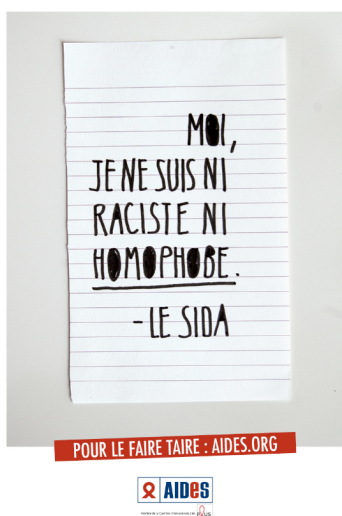 MOI,
JE NE SUIS NI
RACISTE NI
HOMOPHOBE.
- LE SIDA
POUR LE FAIRE TAIRE : AIDES.ORG
AIDES
PLUS